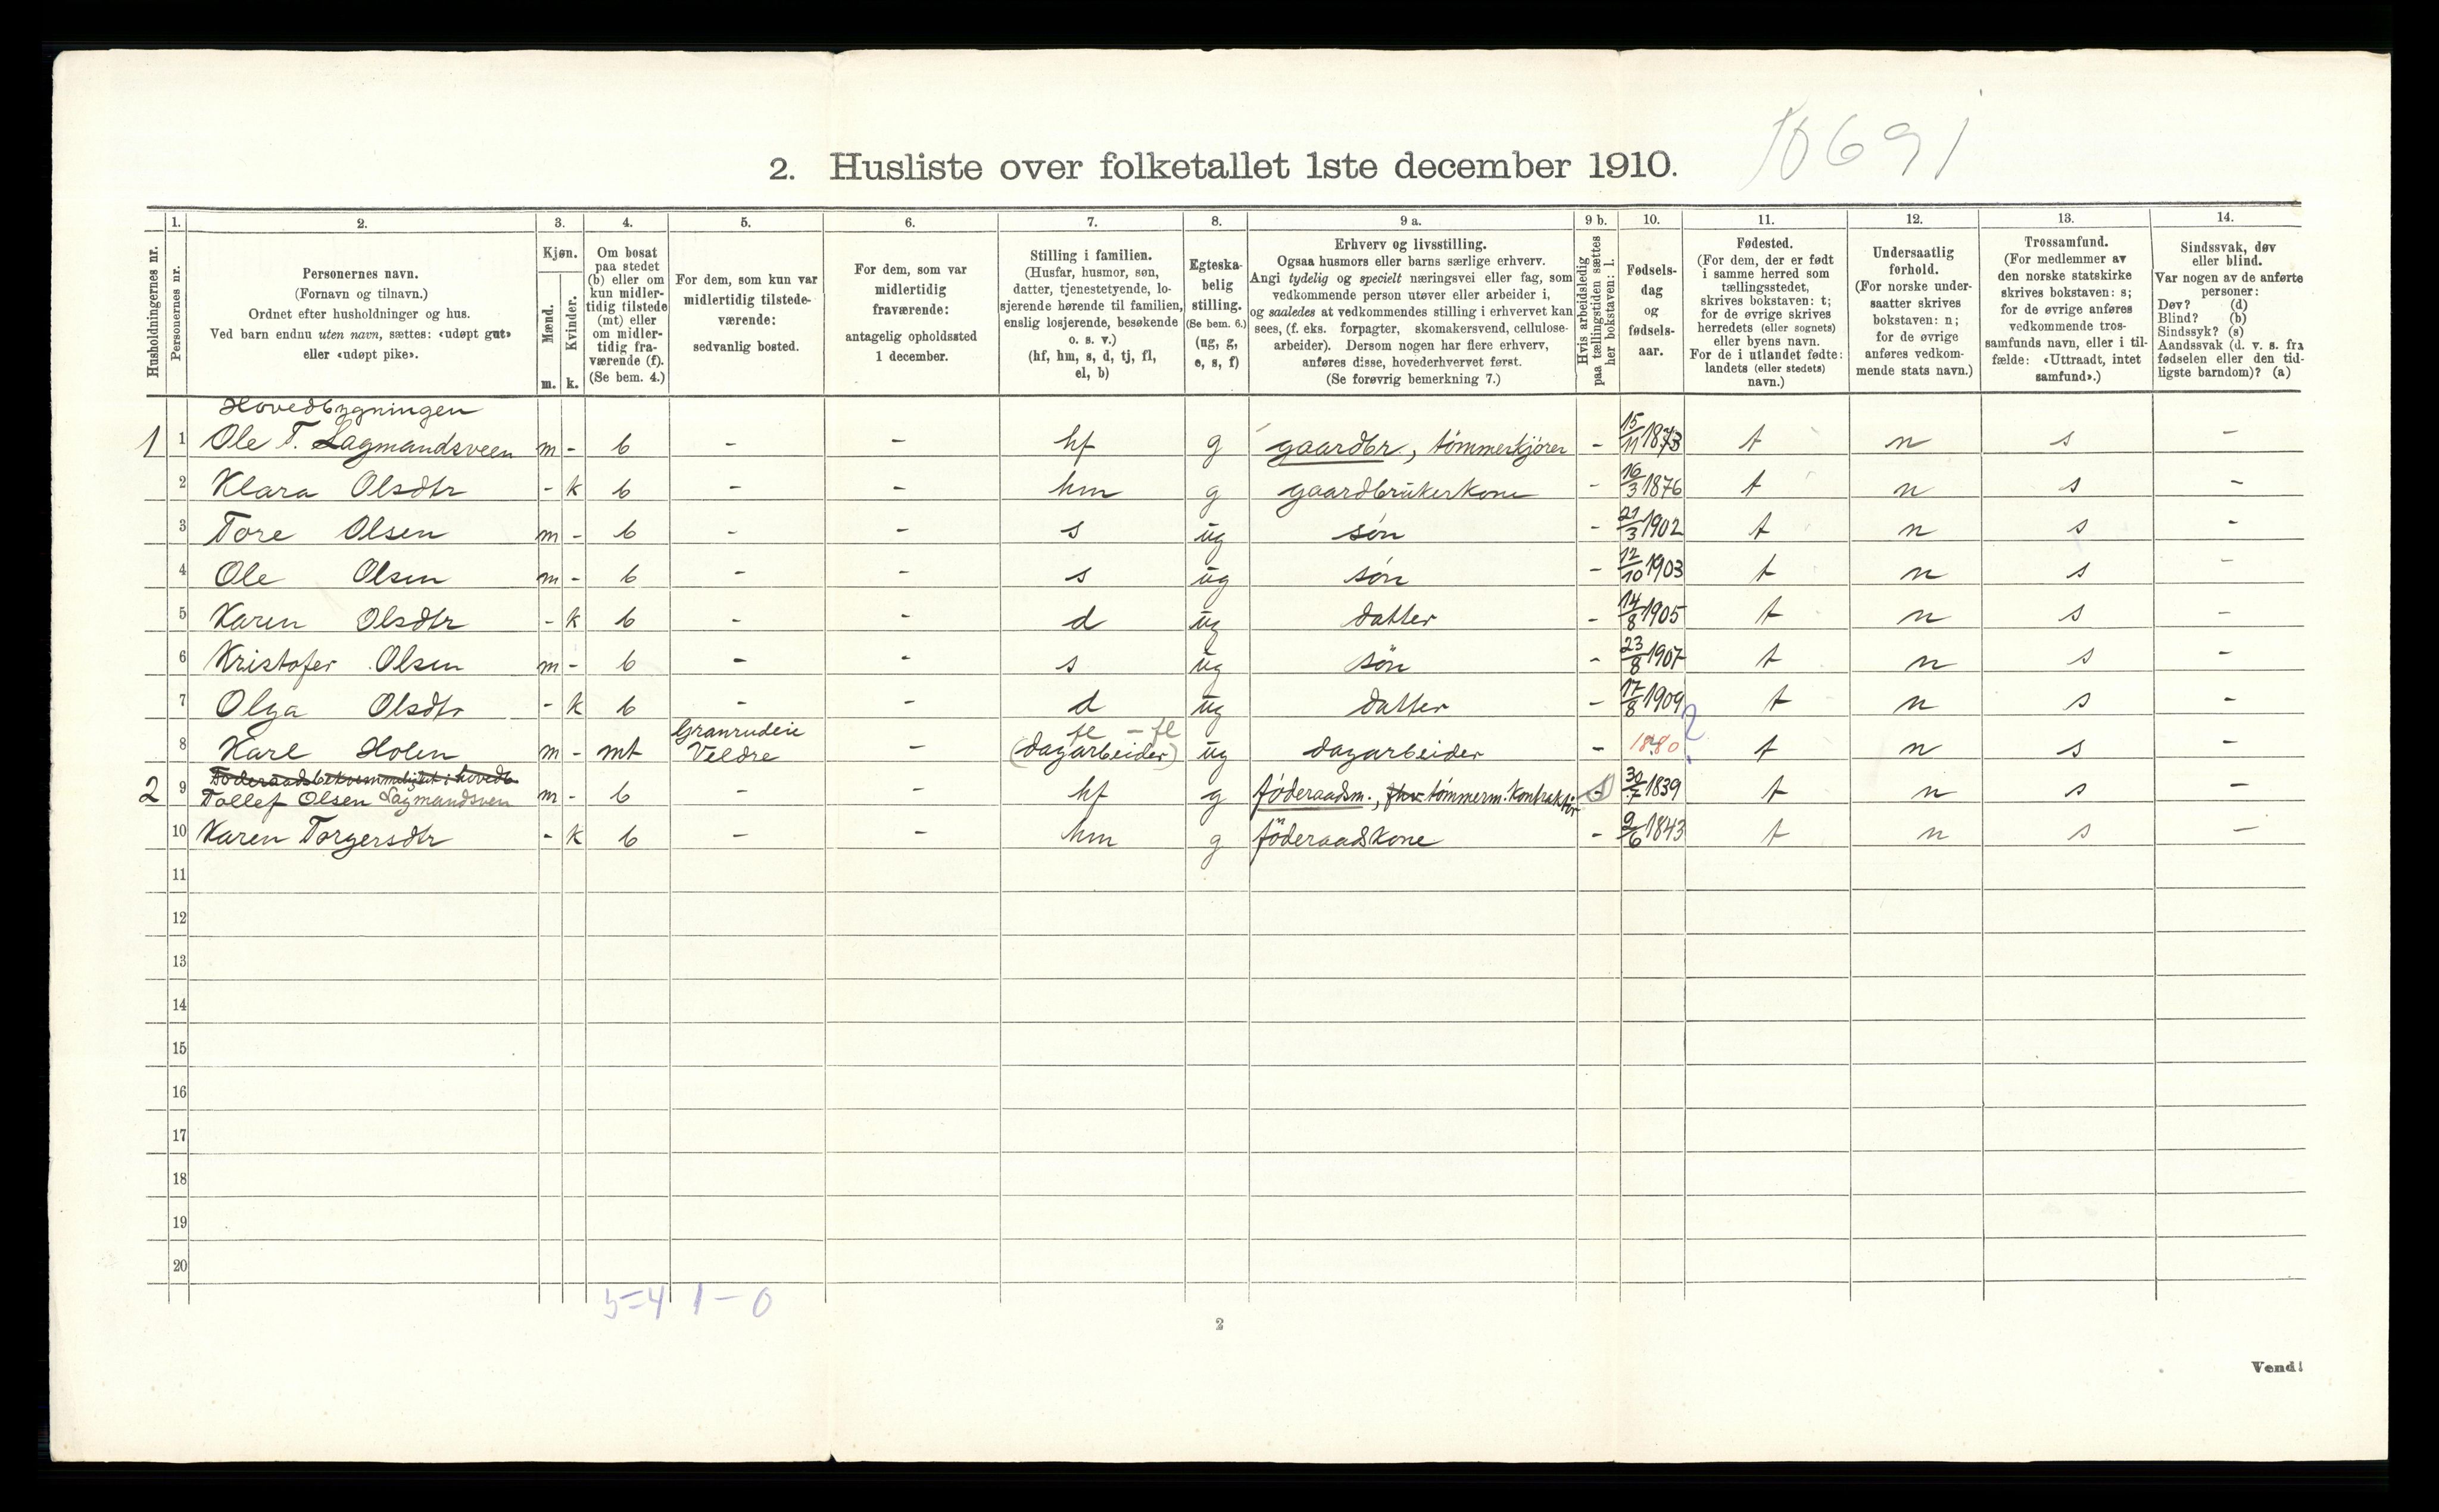 10691
2. Husliste over folketallet 1ste december 1910.
Husholdningernes nr.
1.
Personernes nr.
2.
Personernes navn.
(Fornavn og tilnavn.)
Ordnet efter husholdninger og hus.
Ved barn endnu uten navn, sættes: «udøpt gut»
eller «udøpt pike».
3.
Kjøn.
Mænd.
Kvinder.
m. k.
4.
Om bosat
paa stedet
(b) eller om
kun midler-
tidig tilstede
(mt) eller
om midler-
tidig fra-
værende (f).
(Se bem. 4.)
5.
For dem, som kun var
midlertidig tilstede-
værende:
sedvanlig bosted.
6.
For dem, som var
midlertidig
fraværende:
antagelig opholdssted
1 december.
7.
Stilling i familien.
(Husfar, husmor, søn,
datter, tjenestetyende, lo-
sjerende hørende til familien,
enslig losjerende, besøkende
o. s. v.)
(hf, hm, s, d, tj, fl,
el, b)
8.
Egteska-
belig
stilling.
(Se bem. 6.)
(ug, g,
e, s, f)
9 a.
Erhverv og livsstilling.
Ogsaa husmors eller barns særlige erhverv.
Angi tydelig og specielt næringsvei eller fag, som
vedkommende person utøver eller arbeider i,
og saaledes at vedkommendes stilling i erhvervet kan
sees, (f. eks. forpagter, skomakersvend, cellulose-
arbeider). Dersom nogen har flere erhverv,
anføres disse, hovederhvervet først.
(Se forøvrig bemerkning 7.)
9 b.
Hvis arbeidsledig
paa tællingstiden sættes
her bokstaven: l.
10.
Fødsels-
dag
og
fødsels-
aar.
11.
Fødested.
(For dem, der er født
i samme herred som
tællingsstedet,
skrives bokstaven: t;
for de øvrige skrives
herredets (eller sognets)
eller byens navn.
For de i utlandet fødte:
landets (eller stedets)
navn.)
12.
Undersaatlig
forhold.
(For norske under-
saatter skrives
bokstaven: n;
for de øvrige
anføres vedkom-
mende stats navn.)
13.
Trossamfund.
(For medlemmer av
den norske statskirke
skrives bokstaven: s;
for de øvrige anføres
vedkommende tros-
samfunds navn, eller i til-
fælde: «Uttraadt, intet
samfund».)
14.
Sindssvak, døv
eller blind.
Var nogen av de anførte
personer:
Døv? (d)
Blind? (b)
Sindssyk? (s)
Aandssvak (d. v. s. fra
fødselen eller den tid-
ligste barndom)? (a)
Hovedbygningen
1 1 Ole T. Lagmandsveen m - b - - hf g gaardbr., tømmerkjører - 15/11 1873 t n s -
2 Klara Olsdtr - k b - - hm g gaardbrukerkone - 16/3 1876 t n s -
3 Tore Olsen m - b - - s ug søn - 21/3 1902 t n s -
4 Ole Olsen m - b - - s ug søn - 12/10 1903 t n s -
5 Karen Olsdtr - k b - - d ug datter - 14/8 1905 t n s -
6 Kristofer Olsen m - b - - s ug søn - 23/8 1907 t n s -
7 Olga Olsdtr - k b - - d ug datter - 17/8 1909 t n s -
Granrudeie fl - fl ?
8 Karl Holen m - mt Veldre - (dagarbeider) ug dagarbeider - 1880 t n s -
Föderaadsbekvemmelighet i hovedb.
2 9 Tollef Olsen Lagmandsven m - b - - hf g föderaadsm., fhv tømmerm. kontraktør 30/7 1839 t n s -
10 Karen Torgersdtr - k b - - hm g föderaadskone - 9/6 1843 t n s -
11
12
13
14
15
16
17
18
19
20
5=4 1 - 0
2
Vend!